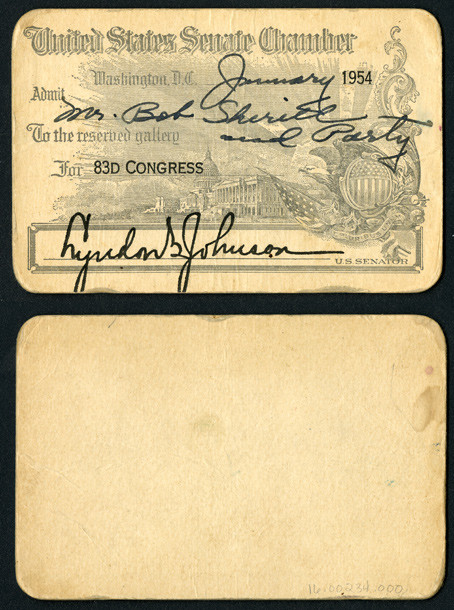 United States Senate Chamber
Washington, D.C. January 1954
Admit
Mr. Bob Sherill
To the reserved gallery and Party
For 83D CONGRESS
Lyndon B Johnson
U.S. SENATOR